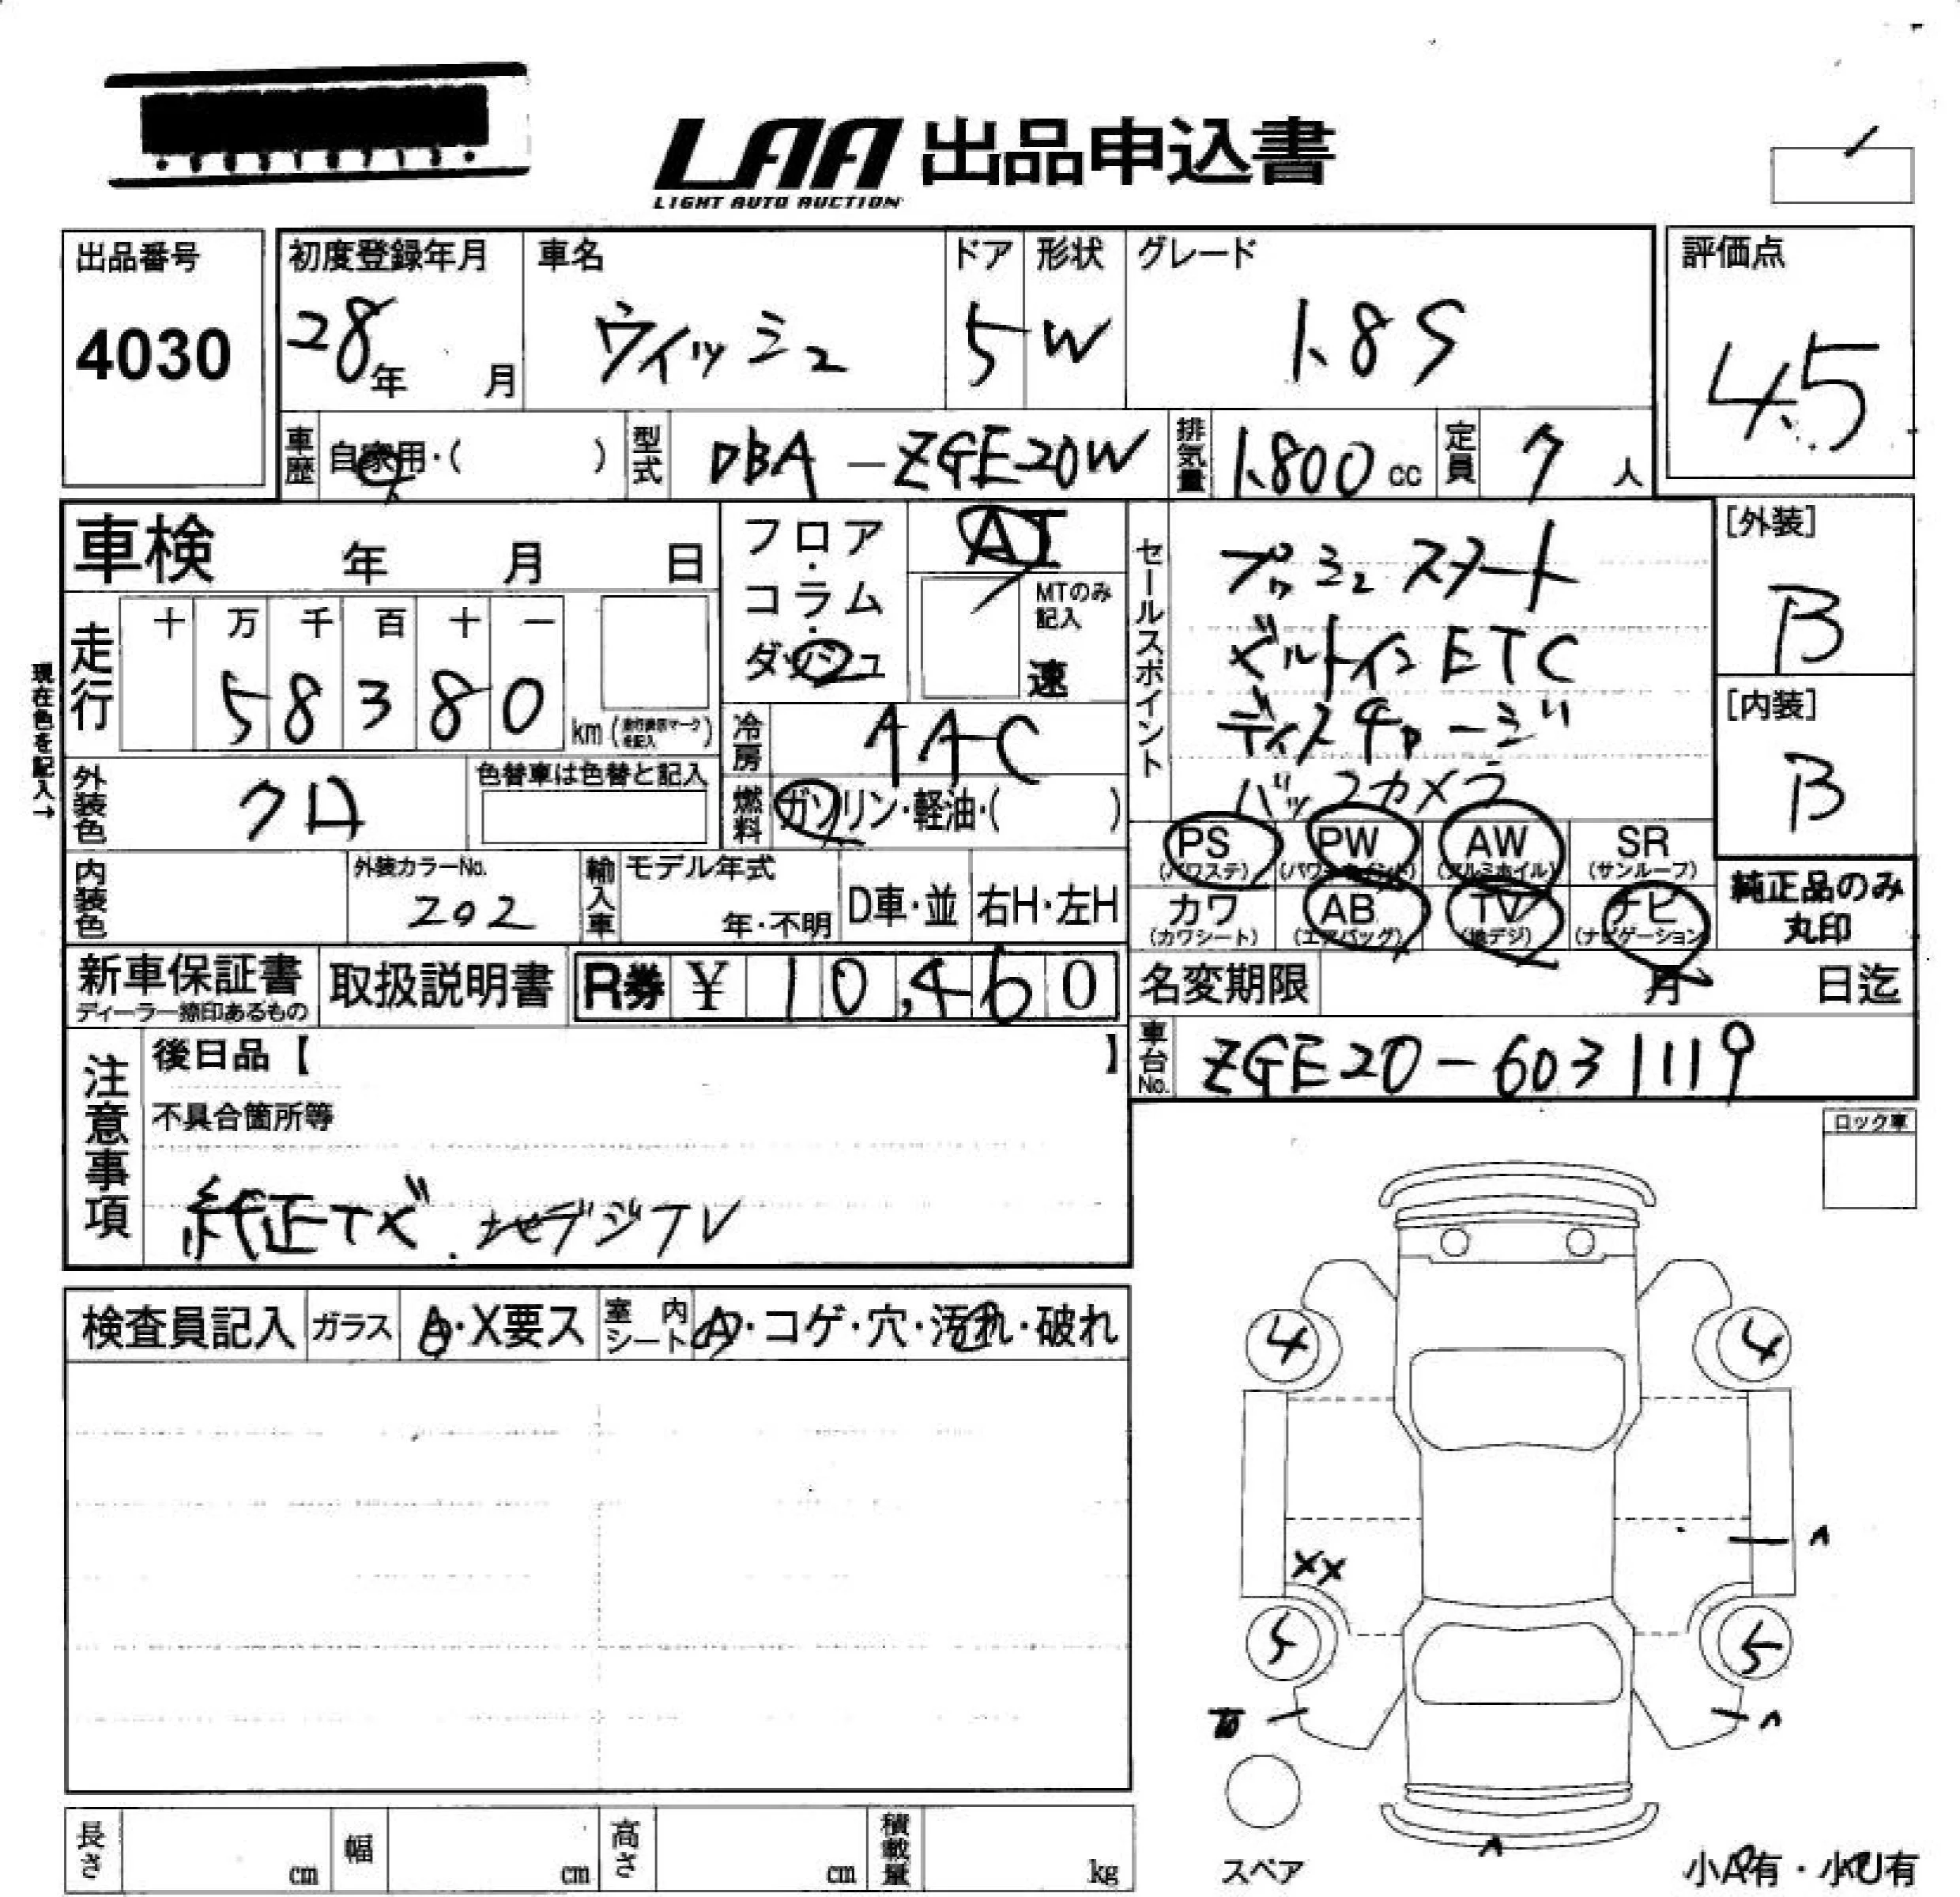 LAA 出品申込書
LIGHT AUTO AUCTION
出品番号
4030
初度登録年月
28年 月
車名
ウィッシュ
ドア
5
形状
W
グレード
1.8S
評価点
4.5
車歴 自家用・( )
型式 DBA-ZGE20W
排気量 1.800 cc
定員 7 人
車検 年 月 日
フロア・コラム・ダッシュ
AT
MTのみ記入
速
セールスポイント
プッシュスタート
ビルトインETC
ディスチャージ
バックカメラ
[外装]
B
[内装]
B
現在色を記入→
走行 十 万 千 百 十 一
58380 km
冷房 AAC
外装色 クロ
色替車は色替と記入
燃料 ガソリン・軽油・( )
PS (パワステ) PW AW (アルミホイル) SR (サンルーフ)
カワ (カワシート) AB (エアバッグ) TV (地デジ) ナビ (ナビゲーション)
純正品のみ丸印
内装色
外装カラーNo.
202
輸入車 モデル年式
年・不明
D車・並 右H・左H
新車保証書
ディーラー捺印あるもの
取扱説明書
R券 ¥ 10,460
名変期限 月 日迄
注意事項
後日品【 】
不具合箇所等
純正 地デジTV
車台No. ZGE20-6031119
ロック車
検査員記入 ガラス A・X要ス 室内シート A・コゲ・穴・汚れ・破れ
4 4
XX
5 5
スペア
長さ cm 幅 cm 高さ cm 積載量 kg
小A有・小U有